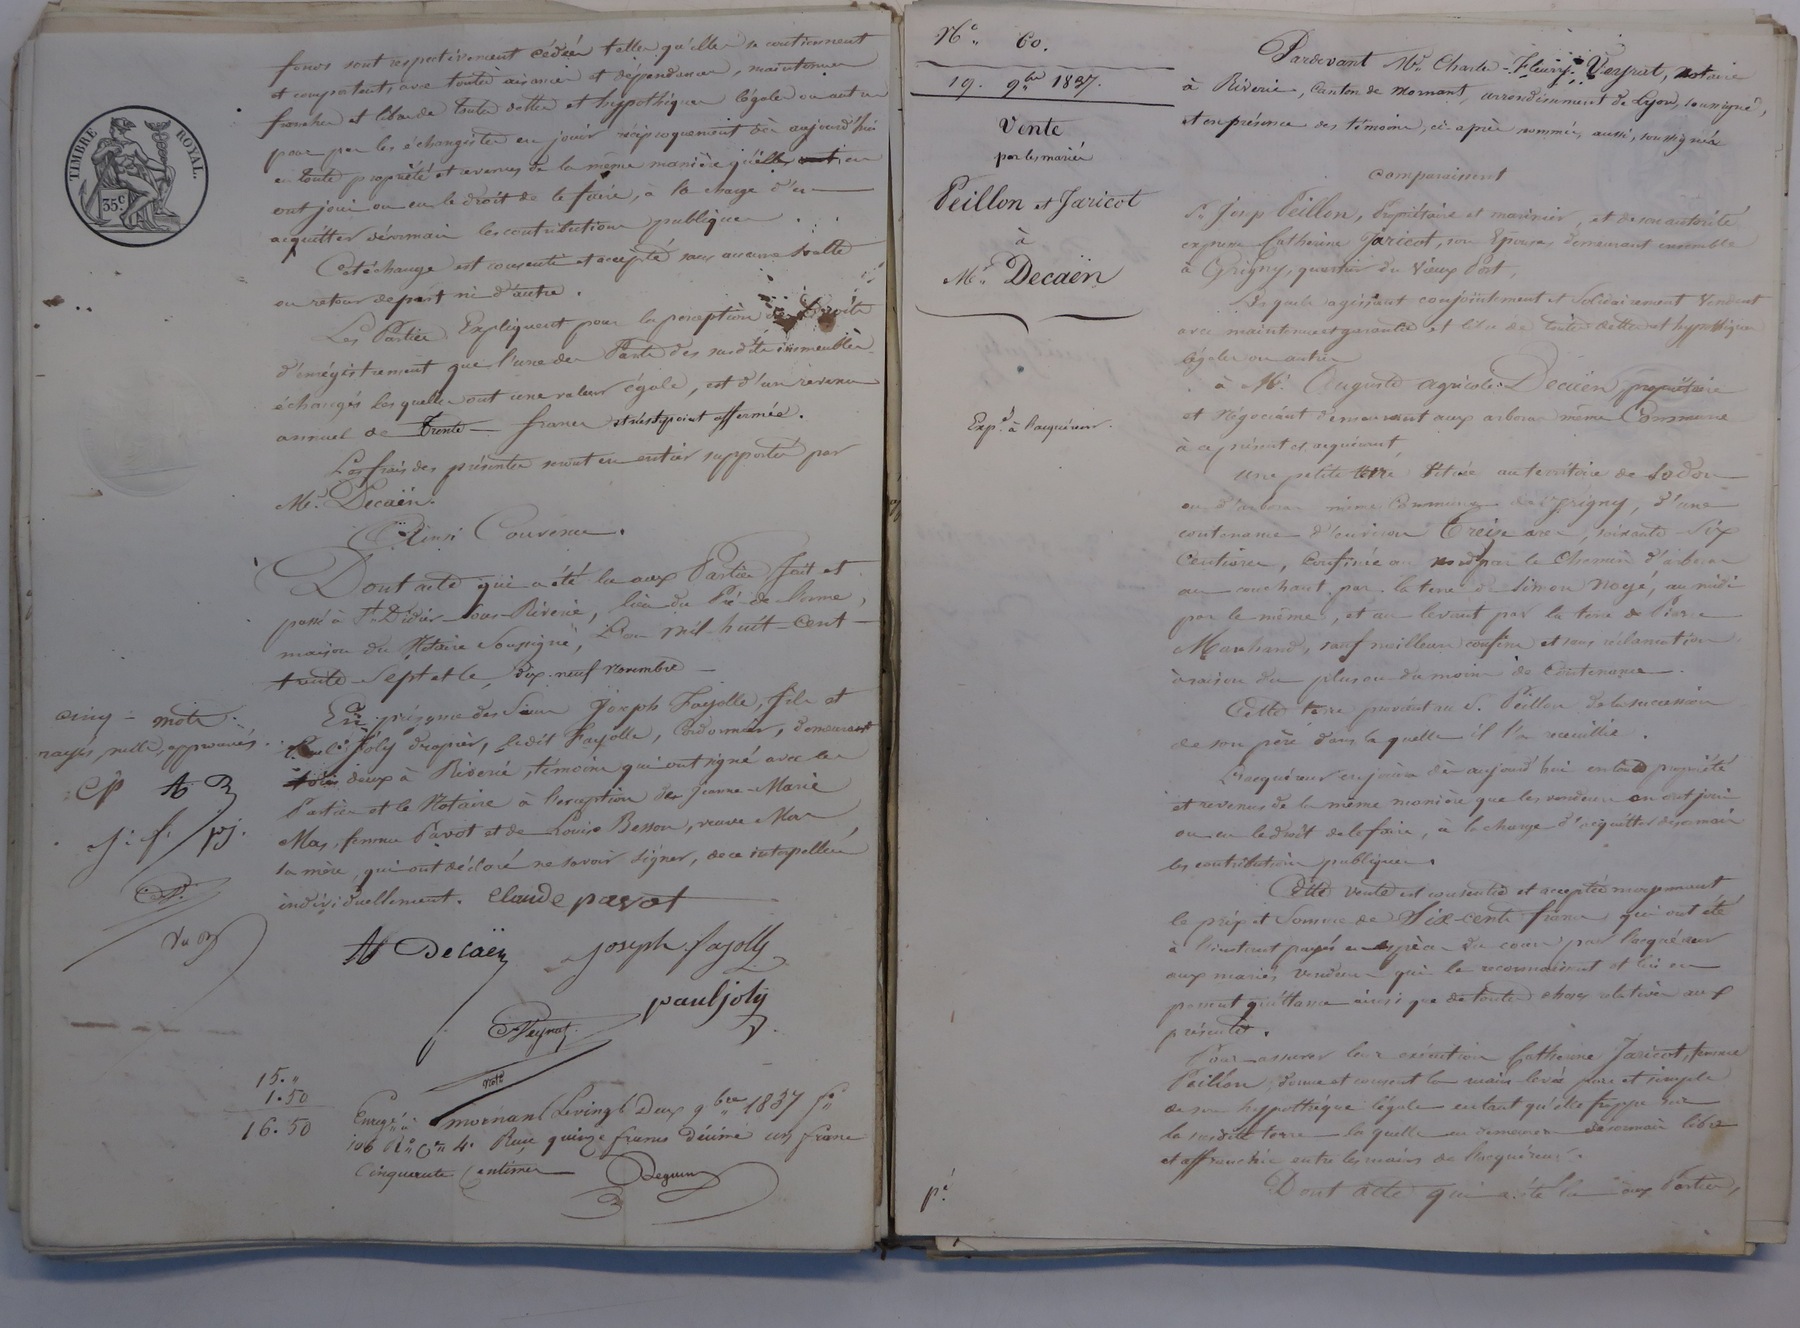 TIMBRE ROYAL.
35c
fonds sont respectivement cédées telles qu'elles se contiennent
et comportent, avec toutes aisances et dépendances, maintenues
franches et libres de toutes dettes et hypothèques légales ou autres
pour par les échangistes en jouir réciproquement dès aujourd'hui
en toute propriété et revenus de la même manière qu'elles en
ont joui ou eu le droit de le faire, à la charge d'en
acquitter désormais les contributions publiques
Cet échange est consenti et accepté sans aucune soulte
ou retour de part ni d'autre.
Les Parties Expliquent pour la perception des droits
d'enrégistrement que l'une des Parts des susdits immeubles
échangés lesquelles ont une valeur égale, est d'un revenu
annuel de trente francs et n'est point affermée.
Les frais des présentes seront en entier supportés par
Mr. Decaën.
Ainsi Convenu.
Dont acte qui a été lu aux Parties, fait et
passé à St Didier-sous-Riverie, lieu du Pré de
maison du Notaire soussigné, L'an mil-huit-cent-
trente-sept et le dix-neuf novembre
En présence des Sieurs Joseph Fayolle, fils et
Paul Joly drapier, ledit Fayolle, Cordonnier, demeurant
tous deux à Riverie, témoins qui ont signé avec les
Parties et le Notaire à l'exception de Jeanne-Marie
Mas, femme Pavot et de Louise Besson, veuve Mas
sa mère, qui ont déclaré ne savoir signer, de ce interpellées
individuellement. Claude pavot
cinq mots
rayés, nuls, approuvés.
CP AD
j. f. pj.
AD Decaën joseph fayolle
paul joly
Veyrat
noté
15. "
1.50
16.50
Enregé à mornant Le vingt Deux 9bre 1837 fo
106 Ro Cn 4. Reçu quinze francs Décime un franc
Cinquante Centimes Deguin
No. 60.
19. 9bre 1837.
Vente
par les mariés
Peillon et Jaricot
à
Mr. Decaën
Expd. à l'acquéreur.
pé
Pardevant Me. Charles-Fleury Veyrat, notaire
à Riverie, Canton de Mornant, arrondissement de Lyon, soussigné,
et en présence des témoins, ci-après nommés, aussi, soussignés
Comparaissent
Sr. Josep Peillon, Propriétaire et marinier, et de son autorité
expresse Catherine Jaricot, son Epouse, demeurant ensemble
à Grigny, quartier du Vieux Port,
Lesquels agissant conjointement et solidairement Vendent
avec maintenue et garantie et libre de toutes dettes et hypothèques
légales ou autres
à Mr. Auguste agricole Decaën, propriétaire
et Négociant demeurant aux arboras même Commune
à ce présent et acquérant,
une petite terre située au territoire de
ou d'arboras même Commune de Grigny, d'une
contenance d'environ treize ares, soixante-Six
Centiares, Confinée au nord par le Chemin d'arboras
au couchant par la terre de Simon Nogé, au midi
par le même, et au levant par la terre de Pierre
Marchand, sauf meilleurs confins et sans réclamation
à raison du plus ou du moins de Contenance.
Cette terre provient au S. Peillon de la succession
de son père dans laquelle il l'a recueillie.
L'acquéreur en jouira dès aujourd'hui en toute propriété
et revenus de la même manière que les vendeurs en ont joui
ou eu le droit de le faire, à la charge d'acquitter désormais
les contributions publiques.
Cette vente est consentie et acceptée moyennant
le prix et Somme de Six cents francs qui ont été
à l'instant payés en espèces du cours par l'acquéreur
aux mariés vendeurs qui le reconnaissent et lui en
passent quittance ainsi que de toutes choses relatives aux
présentes.
Pour assurer leur exécution Catherine Jaricot, femme
Peillon, donne et consent la main levée pure et simple
de son hypothèque légale en tant qu'elle frappe sur
la susdite terre laquelle en demeurera désormais libre
et affranchie entre les mains de l'acquéreur.
Dont acte qui a été lu aux Parties,